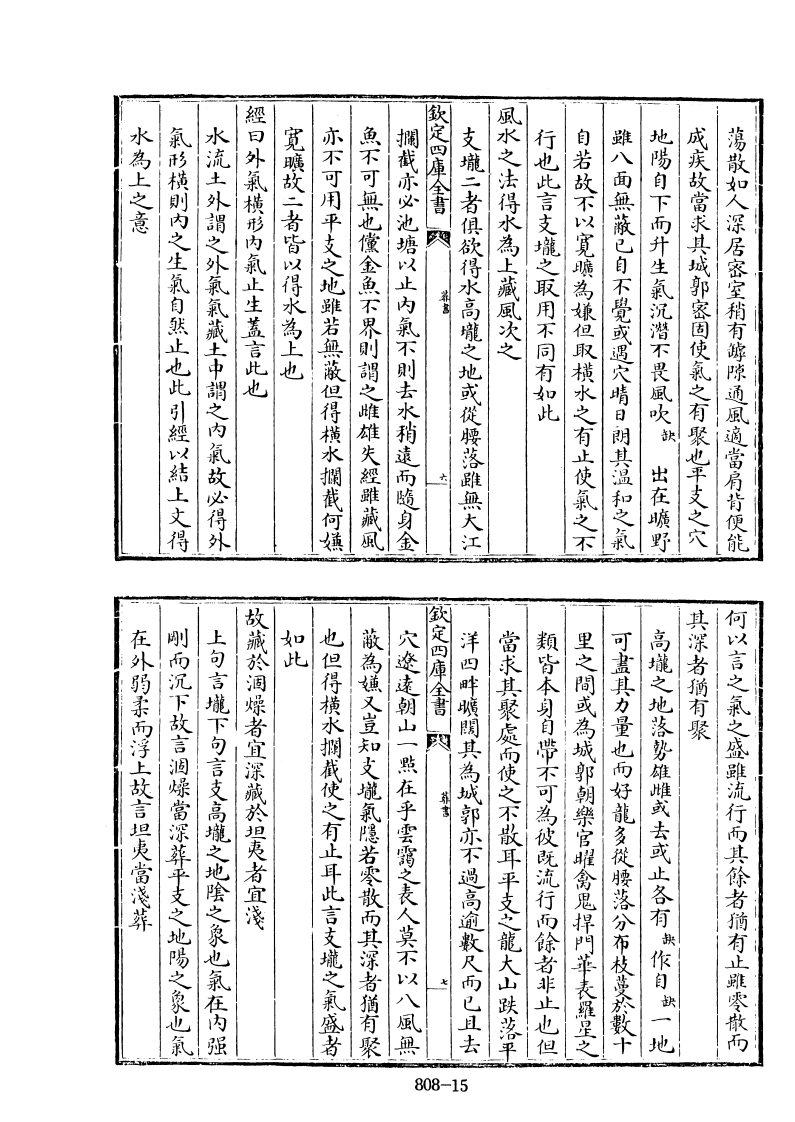 蕩散如人深居密室稍有罅隙通風適當肩背便能
成疾故當求其城郭密固使氣之有聚也平支之穴
地陽自下而升生氣沉潛不畏風吹缺出在曠野
雖八面無蔽已自不覺或遇穴晴日朗其溫和之氣
自若故不以寛曠為嫌但取橫水之有止使氣之不
行也此言支壠之取用不同有如此
風水之法得水為上藏風次之
支壠二者俱欲得水高壠之地或從腰落雖無大江
欽定四庫全書
葬書
六
攔截亦必池塘以止內氣不則去水稍遠而隨身金
魚不可無也儻金魚不界則謂之雌雄失經雖藏風
亦不可用平支之地雖若無蔽但得橫水攔截何嫌
寛曠故二者皆以得水為上也
經曰外氣橫形內氣止生蓋言此也
水流土外謂之外氣氣藏土中謂之內氣故必得外
氣形橫則內之生氣自然止也此引經以結上文得
水為上之意
何以言之氣之盛雖流行而其餘者猶有止雖零散而
其深者猶有聚
高壠之地落勢雄雌或去或止各有缺作自缺一地
可盡其力量也而好龍多從腰落分布枝蔓於數十
里之間或為城郭朝樂官曜禽鬼捍門華表羅星之
類皆本身自帶不可為彼既流行而餘者非止也但
當求其聚處而使之不散耳平支之龍大山跌落平
洋四畔曠闊其為城郭亦不過高逾數尺而已且去
欽定四庫全書
葬書
七
穴遼遠朝山一點在乎雲靄之表人莫不以八風無
蔽為嫌又豈知支壠氣隱若零散而其深者猶有聚
也但得橫水攔截使之有止耳此言支壠之氣盛者
如此
故藏於涸燥者宜深藏於坦夷者宜淺
上句言壠下句言支高壠之地陰之象也氣在內强
剛而沉下故言涸燥當深葬平支之地陽之象也氣
在外弱柔而浮上故言坦夷當淺葬
808-15